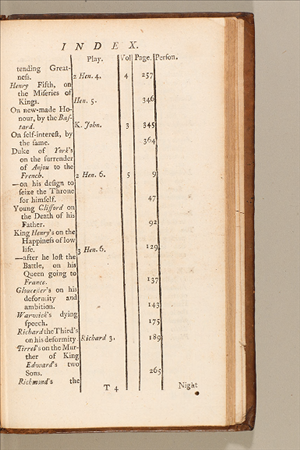 INDEX.
Play. Vol Page. Person.
tending Great-
ness. 2 Hen. 4. 4 257
Henry Fifth, on
the Miseries of
Kings. Hen. 5. 346
On new-made Ho-
nour, by the Bas-
tard. K. John. 3 545
On self-interest, by
the same. 364
Duke of York's
on the surrender
of Anjou to the
French. 2 Hen. 6. 5 9
—on his design to
seize the Throne
for himself. 47
Young Clifford on
the Death of his
Father. 92
King Henry's on the
Happiness of low
life. 3 Hen. 6. 129
—after he lost the
Battle, on his
Queen going to
France. 137
Gloucester's on his
deformity and
ambition. 143
Warwick's dying
speech. 175
Richard the Third's
on his deformity. Richard 3. 189
Tirrel's on the Mur-
ther of King
Edward's two
Sons. 265
Richmond's the
T 4 Night